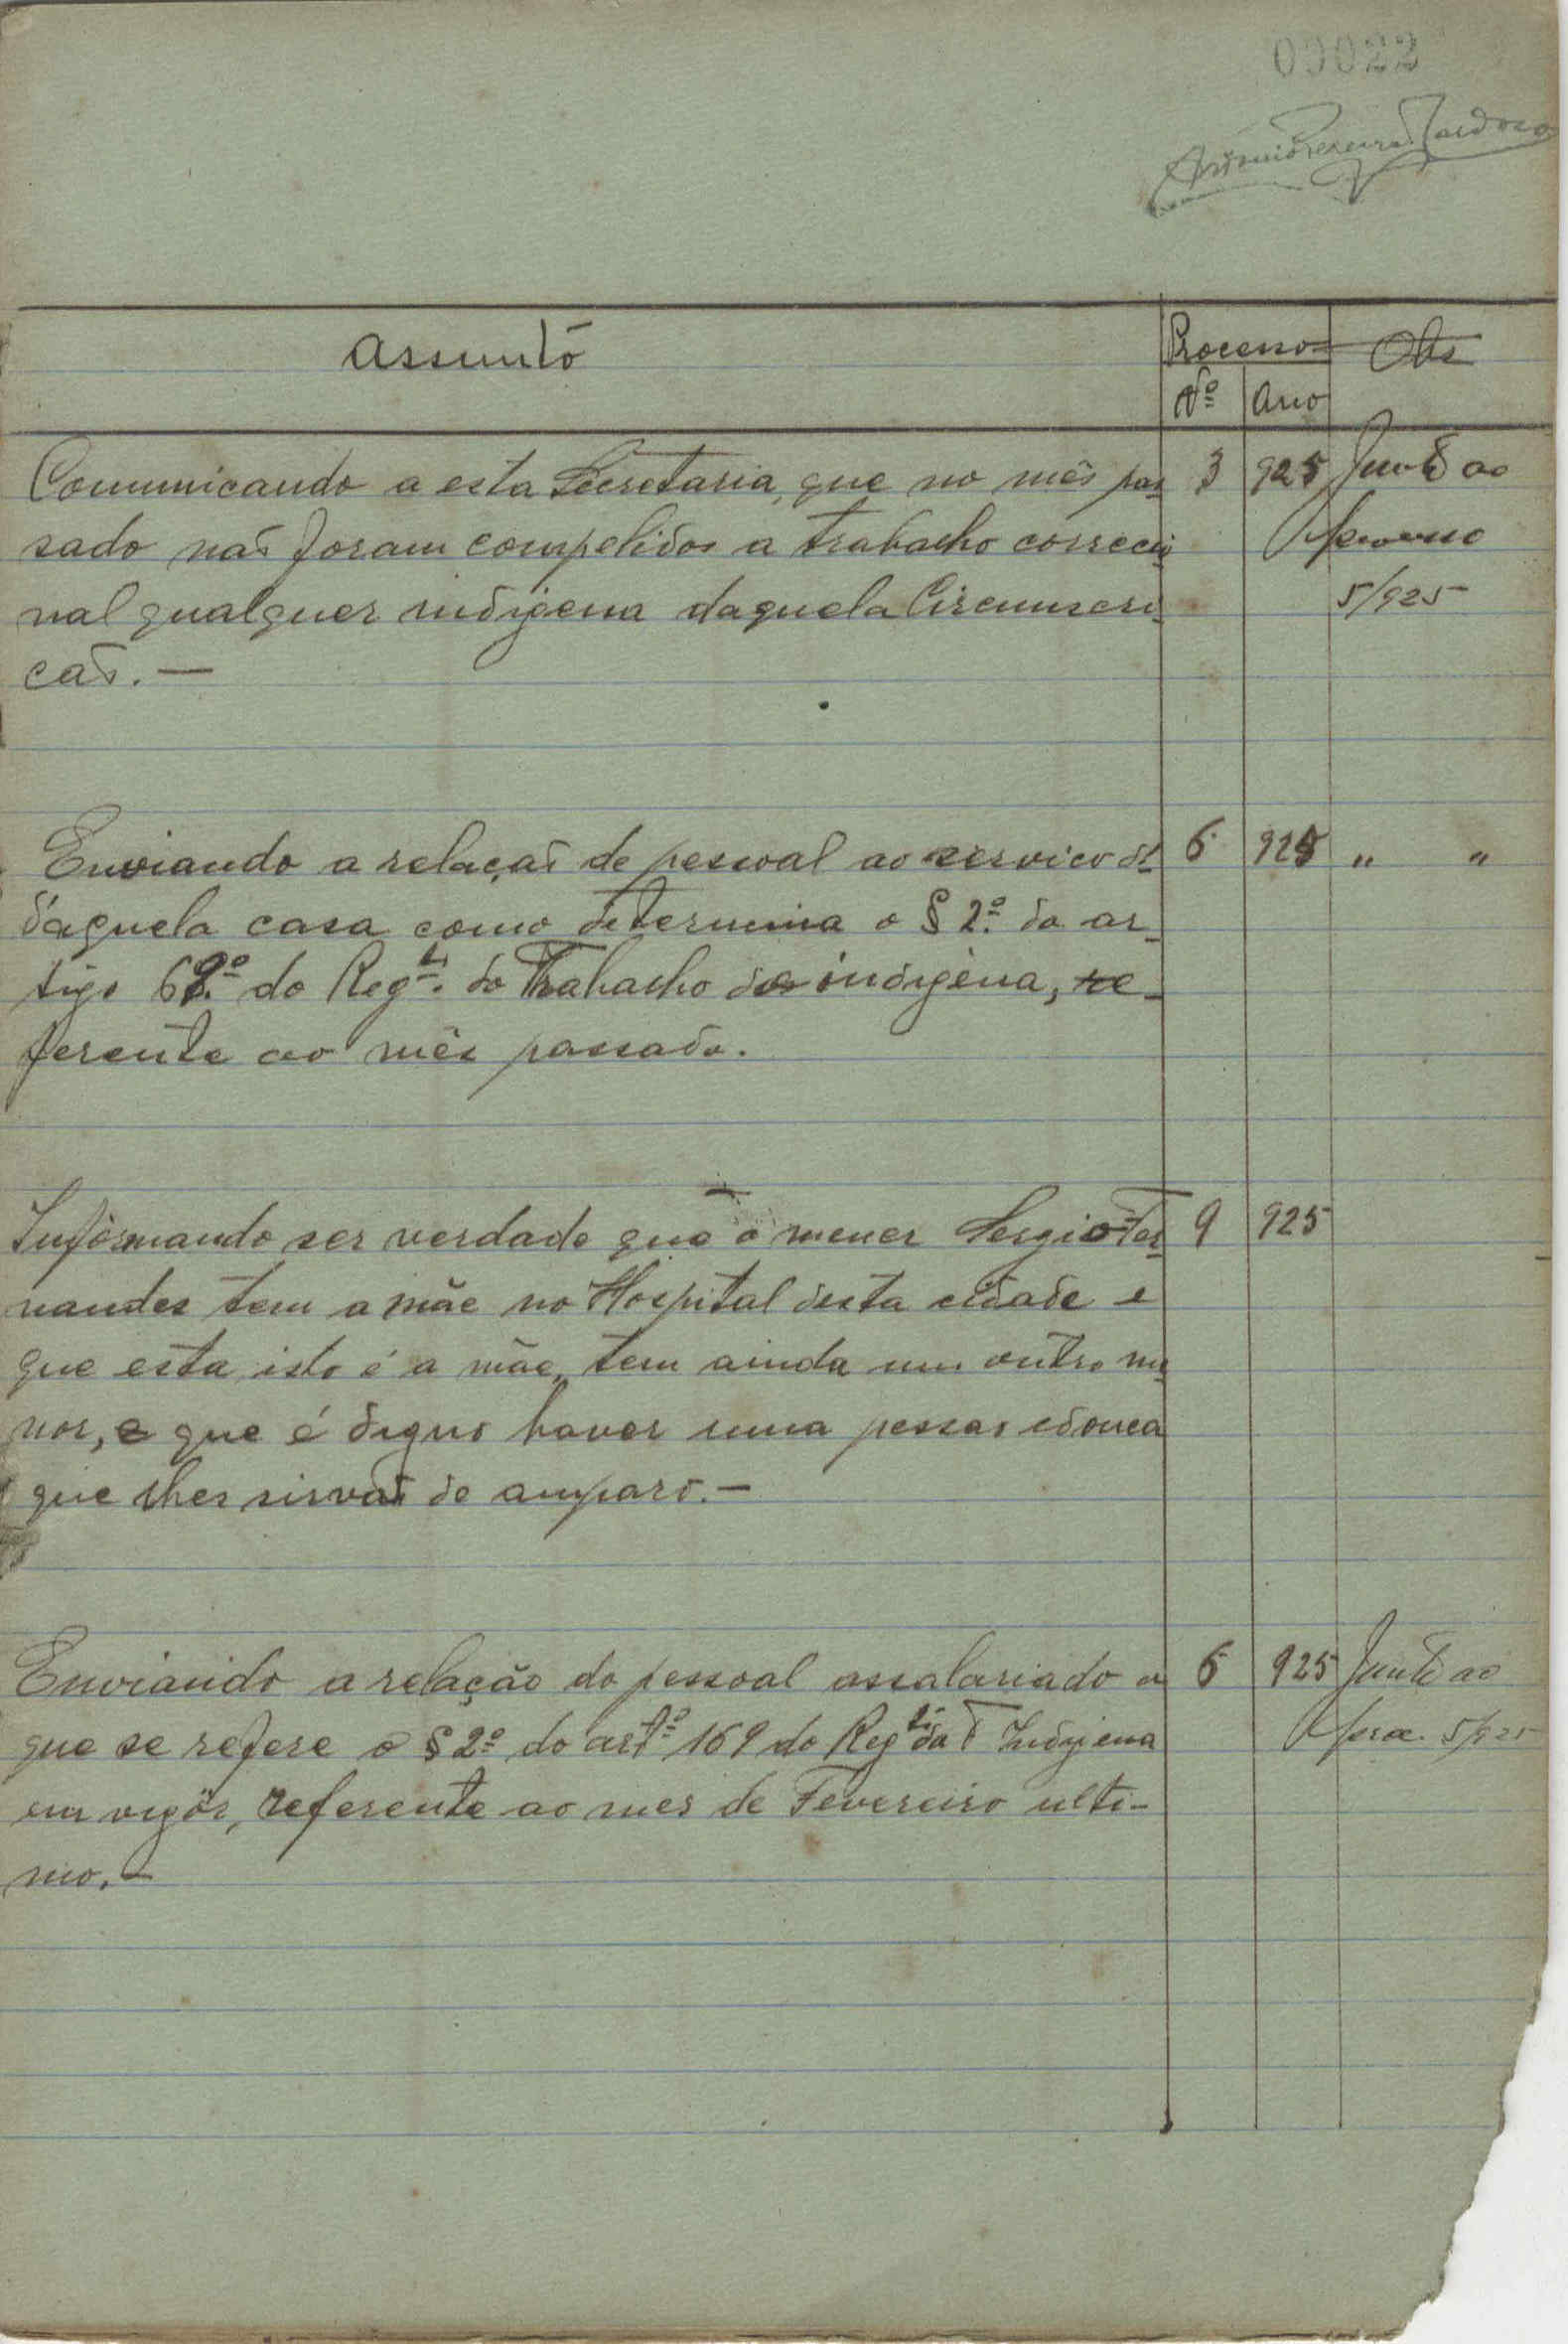 00022
Antonio Pereira Cardoso
Assunto
Processo Obs
Nº Ano
Comunicando a esta Secretaria, que no mês pas 3 925 Junto ao
sado não foram compelidos a trabalho correcio processo
nal qualquer indigena daquela Circunscri 5/925
cão. —
Enviando a relação de pessoal ao servico d 6 925 " "
d'aquela casa como determina o § 2.º do ar
tigo 69.º do Reg.to do Trabalho do indigena, re
ferente ao mês passado.
Informando ser verdade que o menor Sergio Fer 9 925
nandes tem a mãe no Hospital desta cidade e
que esta, isto é a mãe, tem ainda um outro me
nor, e que é digno haver uma pessoa idonea
que lhes sirvão de amparo. —
Enviando a relação do pessoal assalariado a 6 925 Junto ao
que se refere o § 2º do artº 169 do Regto do T Indigena proc. 5/925
em vigôr, referente ao mes de Fevereiro ulti-
mo. —